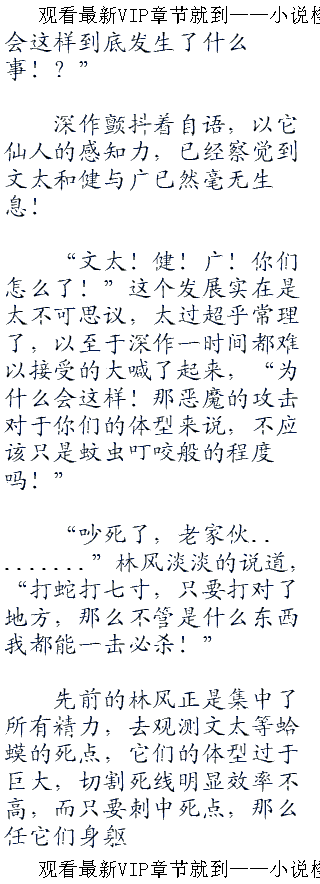 观看最新VIP章节就到——小说检
会这样到底发生了什么
事！？”
深作颤抖着自语，以它
仙人的感知力，已经察觉到
文太和健与广已然毫无生
息！
“文太！健！广！你们
怎么了！”这个发展实在是
太不可思议，太过超乎常理
了，以至于深作一时间都难
以接受的大喊了起来，“为
什么会这样！那恶魔的攻击
对于你们的体型来说，不应
该只是蚊虫叮咬般的程度
吗！”
“吵死了，老家伙..
.......”林风淡淡的说道，
“打蛇打七寸，只要打对了
地方，那么不管是什么东西
我都能一击必杀！”
先前的林风正是集中了
所有精力，去观测文太等蛤
蟆的死点，它们的体型过于
巨大，切割死线明显效率不
高，而只要刺中死点，那么
任它们身躯
观看最新VIP章节就到——小说检